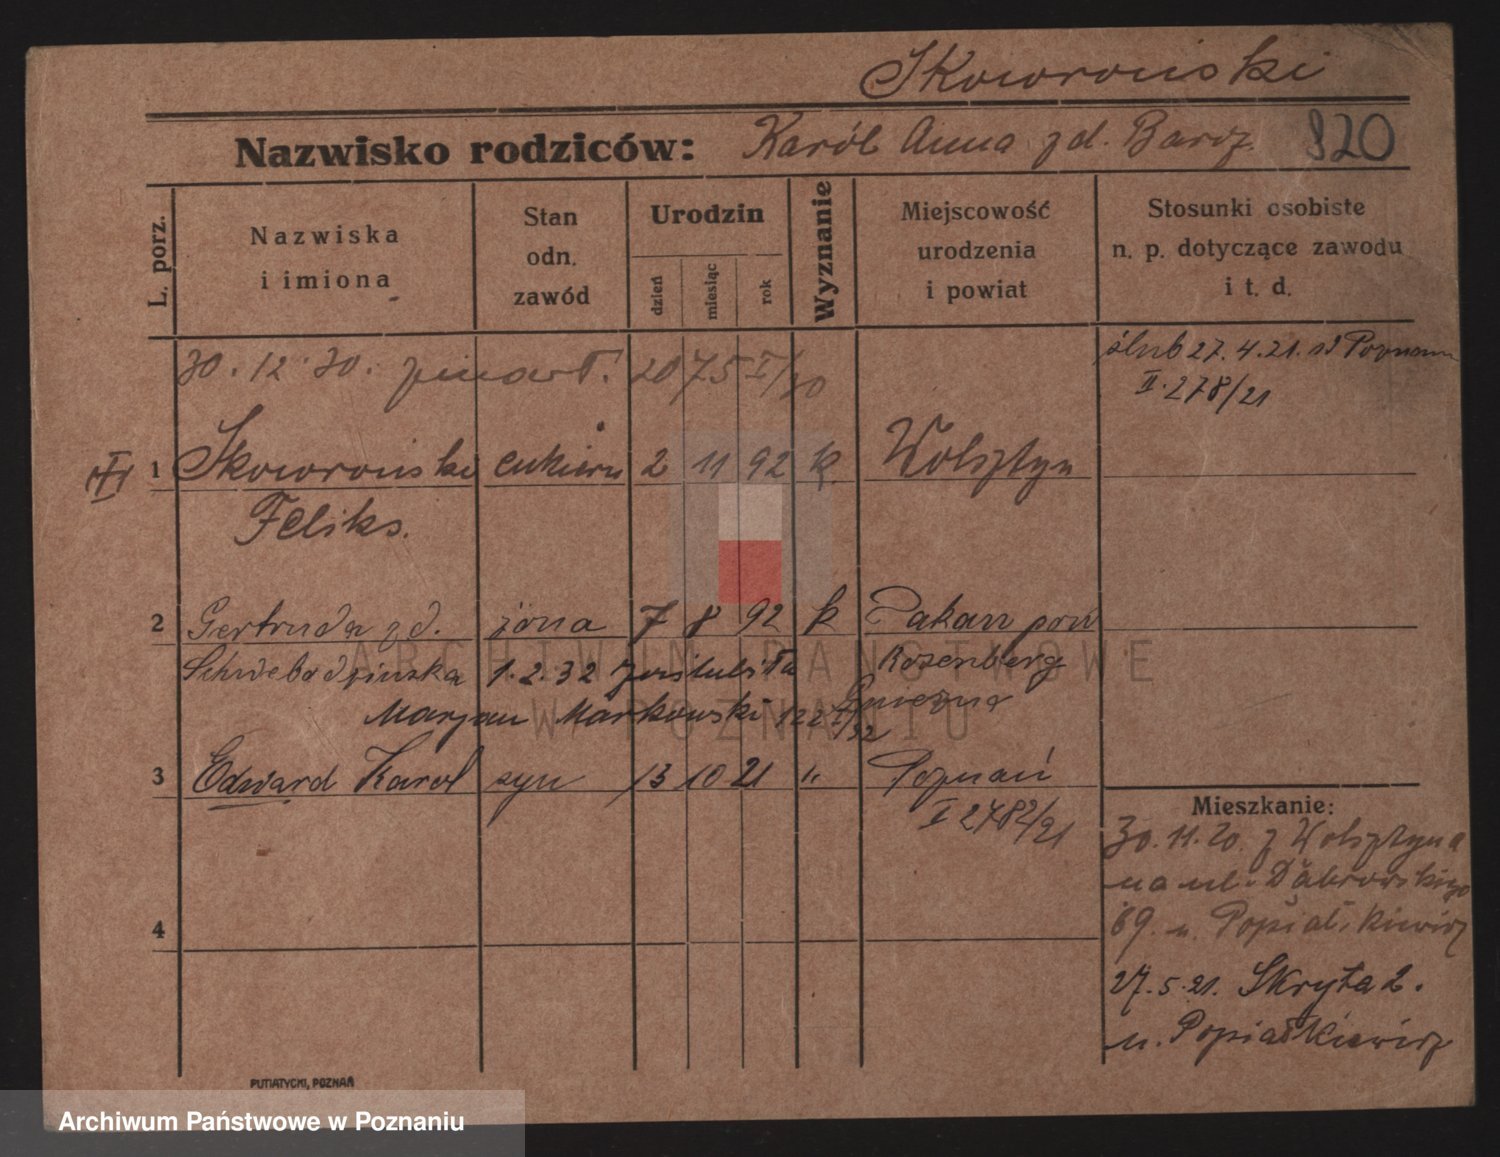 Skoworoński
Nazwisko rodziców: Karól Anna zd. Barcz 820
L. porz.
Nazwiska
i imiona
Stan
odn.
zawód
Urodzin
dzień
miesiąc
rok
Wyznanie
Miejscowość
urodzenia
i powiat
Stosunki osobiste
n. p. dotyczące zawodu
i t. d.
30. 12. 30. zmarł. 2075 I/30
ślub 27. 4. 21. Poznań
II. 278/21
1 Skoworoński cukiern 2 11 92 k. Wolsztyn
Feliks.
2 Gertruda zd. żona 7 8 92 k Pakan pow
Schwebodzinska 1. 2. 32 poślubiła Rozenberg
Marjan Markowski 122 I/32 Gniezna
3 Edward Karol syn 13 10 21 " Poznań
I 2782/21
4
Mieszkanie:
30. 11. 20. z Wolsztyna
na ul. Dąbrowskiego
69. u. Popiałkiewicz
27. 5. 21. Skryta 2.
u. Popiałkiewicz
PUTIATYCKI, POZNAŃ
ARCHIWUM PAŃSTWOWE
W POZNANIU
Archiwum Państwowe w Poznaniu